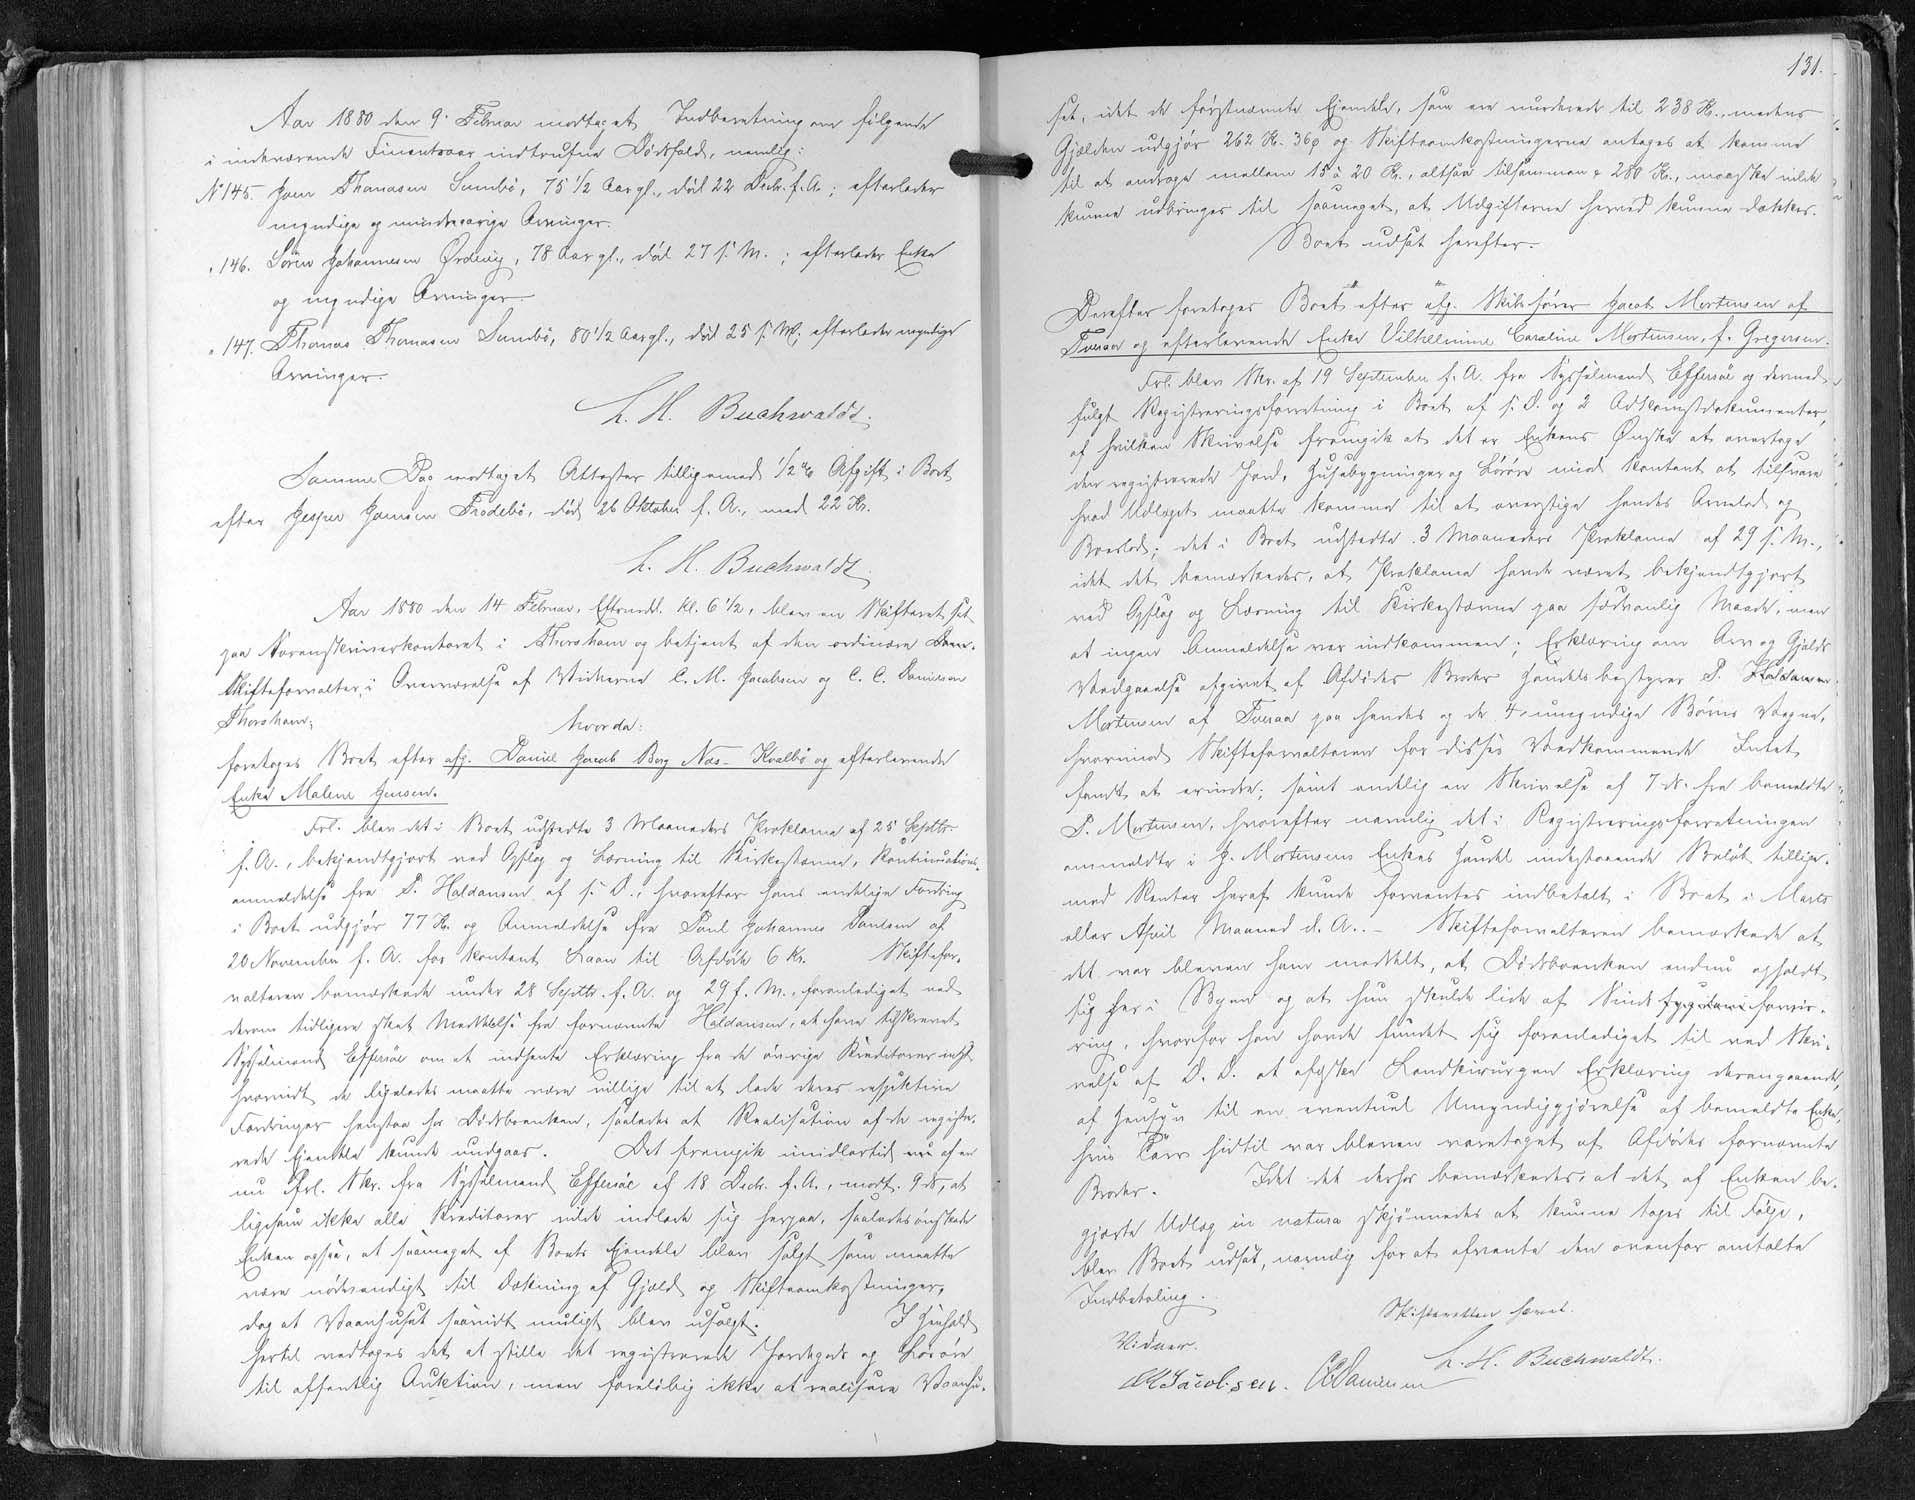 Aar 1880 den 9. Februar modtaget Indberetning om følgende
i indeværende Finantsaar indtrufne Dødsfald, nemlig:
No 145. Joen Thomasen Sumbö, 75 1/2 Aar gl., död 22 Decbr. f. A.; efterlader
myndige og mindreaarige Arvinger.
" 146. Sören Johannesen Ørdevig, 78 Aar gl., död 27 f. M.; efterlader Enke
og myndige Arvinger.
" 147. Thomas Thomasen Sumbö, 80 1/2 Aar gl., död 25 f. M; efterlader myndige
Arvinger.
L. H. Buchwaldt.
Samme Dag modtaget Attester tilligemed 1/2 % Afgift i Boet
efter Jesper Joensen Frodebö, död 26 Oktober f. A., med 22 Kr.
L. H. Buchwaldt.
Aar 1880 den 14 Februar, Eftermdd. Kl. 6 1/2, blev en Skifteret sat
paa Sorenskriverkontoret i Thorshavn og betjent af den ordinære
Skifteforvalter, i Overværelse af Vidnerne C. M. Jacobsen og C. C. Danielsen
Thorshavn;
hvorda:
foretoges Boet efter afg. Daniel Jacob Berg Næs - Hvalbö og efterlevende
Enke Malene Jensen.
Frl. blev det i Boet udstedte 3 Maaneders Proklama af 25 Septbr.
f. A., bekjendtgjort ved Opslag og Læsning til Kirkestævne, Kontinuations-
anmeldelse fra P. Haldansen af s. D., hvorefter hans endelige Fordring
i Boet udgjör 77 Kr. og Anmeldelse fra Poul Johannes Poulsen af
20 November f. A. for kontant Laan til Afdöde 6 Kr. Skiftefor-
valteren bemærkede under 28 Septbr. f. A. og 29 f. M., foranlediget ved
derom tidligere skete Meddelelse fra fornævnte Haldansen, at have tilskrevet
Sysselmand Effersöe om at indhente Erklæring fra de övrige Kreditorer
hvorvidt de ligeledes maatte være villige til at lade deres respektive
Fordringer henstaa hos Dödsboenken, saaledes at Realisation af de registre-
rede Ejendele kunde undgaaes. Det fremgik imidlertid af en
nu frl. Skr. fra Sysselmand Effersöe af 18 Decbr. f. A., modt. 9 ds, at
ligesom ikke alle Kreditorer vilde indlade sig herpaa, saaledes önskede
Enken ogsaa, at saameget af Boets Ejendele blev solgt som maatte
være nödvendigt til Dækning af Gjæld og Skifteomkostninger,
dog at Vaanhuset saavidt muligt blev usolgt. I Henhold
hertil vedtoges det at stille det registrerede Jordegods og Lösöre
til offentlig Auktion, men foreløbig ikke at realisere Vaanhu-
131.
set, idet de förstnævnte Ejendele, som ere vurderede til 238 Kr., medens
Gjælden udgjör 262 Kr. 36 ø og Skifteomkostningerne antages at komme
til at andrage mellem 15 à 20 Kr., altsaa tilsammen c 280 Kr., maaske vilde
kunne udbringes til saameget, at Udgifterne herved kunne dækkes.
Boet udsat herefter.
Derefter foretoges Boet efter afg. Skibsförer Jacob Mortensen af
Tveraa og efterlevende Enke Vilhelmine Caroline Mortensen, f. Gregersen.
Frl. blev Skr. af 19 September f. A. fra Sysselmand Effersöe og dermed
fulgt Registreringsforretning i Boet af s. D. og 2 Adkomstdokumenter,
af hvilken Skrivelse fremgik at det er Enkens Ønske at overtage
den registrerede Jord, Husebygninger og Lösöre mod kontant at tilsvare
hvad Udlæget maatte komme til at overstige hendes Arvelod og
Boeslod; det i Boet udstedte 3 Maaneders Proklama af 29 s. M.,
idet det bemærkedes, at Proklama havde været bekjendtgjort
ved Opslag og Læsning til Kirkestævne paa sædvanlig Maade, men
at ingen Anmeldelse var indkommen; Erklæring om Arv og Gjælds
Vedgaaelse afgivet af Afdödes Broder Handelsbestyrer P.
Mortensen af Tveraa paa hendes og de 4 umyndige Börns Vegne,
hvorimod Skifteforvalteren for disses Vedkommende Intet
fandt at erindre; samt endelig en Skrivelse af 7 ds. fra bemeldte
P. Mortensen, hvorefter nemlig det i Registreringsforretningen
anmeldte i J. Mortensens Enkes Handel indestaaende Belöb tillige-
med Renter heraf kunde forventes indbetalt i Boet i Marts
eller April Maaned d. A.. - Skifteforvalteren bemærkede at
det var bleven ham meddelt, at Dödsboenken endnu opholdt
sig her i Byen og at hun skulde lide af Sinds forvir-
ring, hvorfor han havde fundet sig foranlediget til ved Skri-
velse af D. D. at afæske Landkirurgen Erklæring derangaaende,
af Hensyn til en eventuel Umyndiggjørelse af bemeldte Enke,
hvis Tarv hidtil var bleven varetaget af Afdödes fornævnte
Broder. Idet det derhos bemærkedes, at det af Enken be-
gjærte Udlæg in natura skjönnedes at kunne tages til Fölge,
blev Boet udsat, navnlig for at afvente den ovenfor omtalte
Indbetaling.
Skifteretten hævet.
Vidner.
L. H. Buchwaldt.
CMJacobsen. CCDanielsen